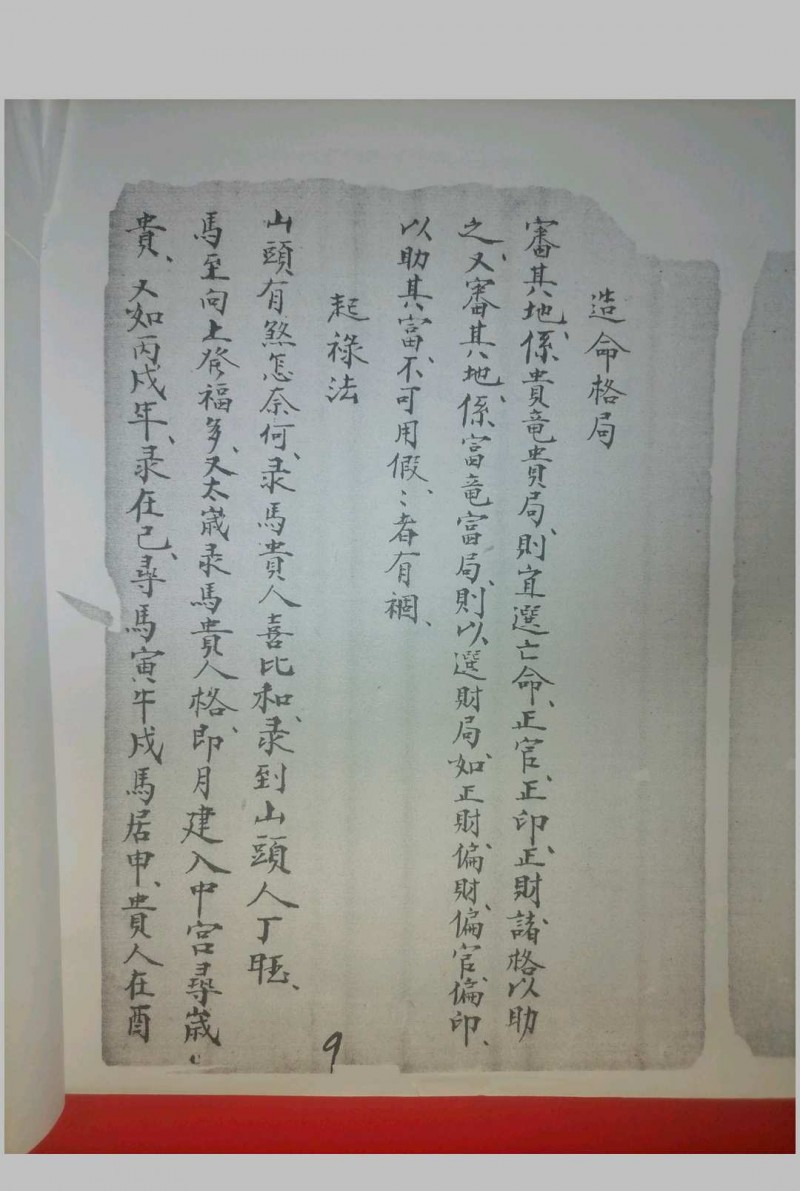 造命格局
審其地、係貴竜貴局、則宜選亡命、正官、正印、正財、諸格以助
之、又審其地、係富竜富局、則以選財局、如正財、偏財、偏官、偏印、
以助其富、不可用假、〻者有禍、
起祿法
山頭有煞怎奈何、录馬貴人喜比和、录到山頭人丁旺、
馬至向上發福多、又太歲录馬貴人格、即月建入中宮尋歲
貴、又如丙戍年、录在己、尋馬寅午戍馬居申、貴人在酉
9